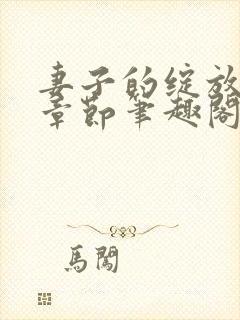 妻子的绽放
章節筆趣閣
馬闖